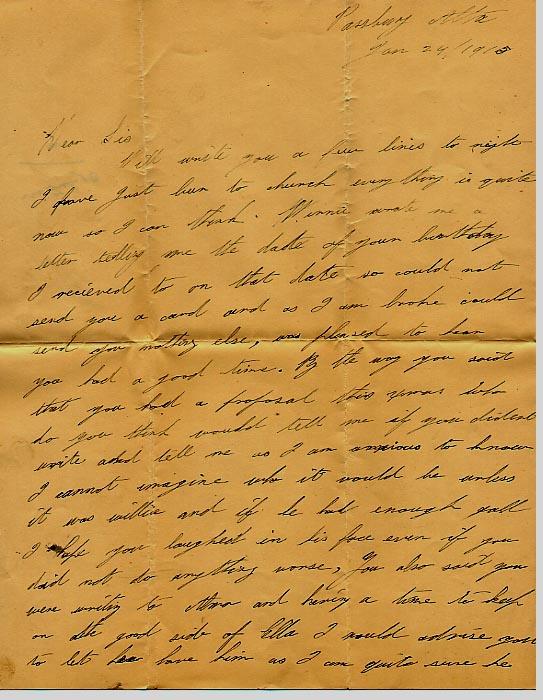 Passburg Alta
Jan 24/1915
Dear Sis
Will write you a few lines to night
I have just been to church everything is quite
now so I can think. Winnie wrote me a
letter telling me the date of your birthday
I recieved to on that date so could not
send you a card and as I am broke could
send you nothing else, was pleased to hear
you had a good time. By the way you said
that you had a proposal this xmas who
do you think would tell me if you dident
write and tell me as I am anxious to know
I cannot imagine who it would be unless
it was willie and if he had enough gall
I hope you laughed in his face even if you
did not do anything worse, You also said you
were writing to and having a time to keep
on the good side of Ella I would advise you
to let her have him as I am quite sure he